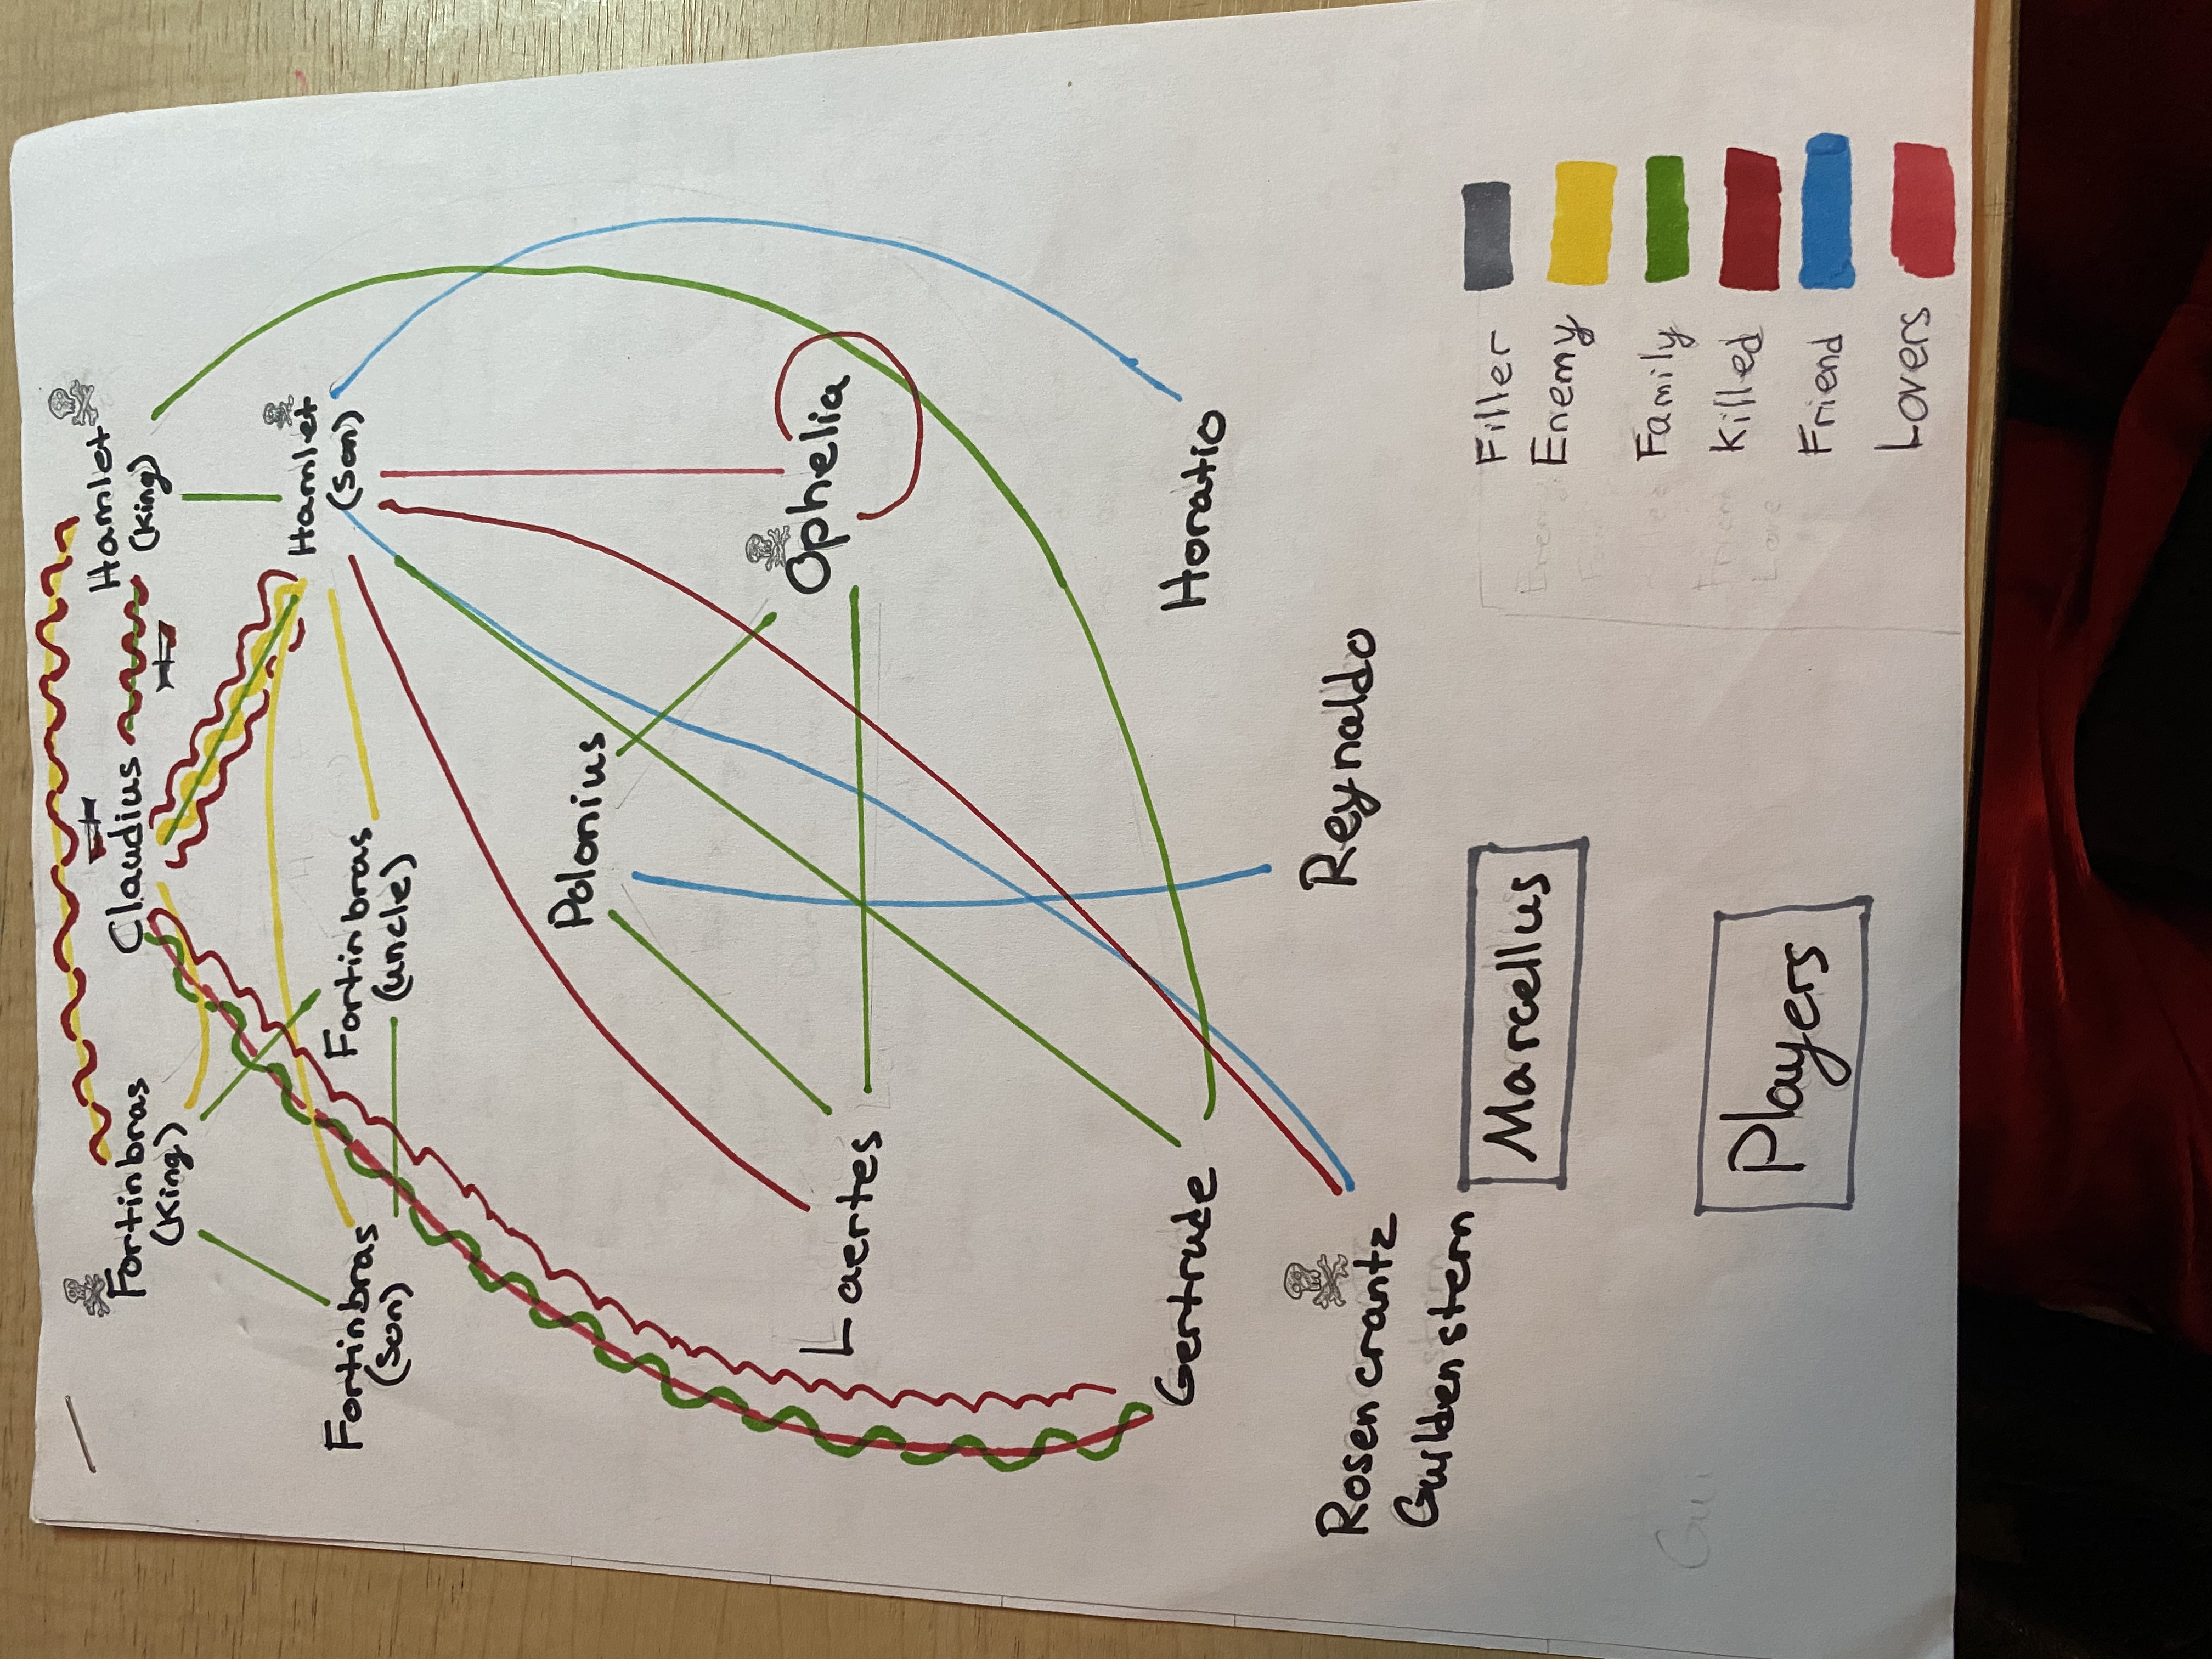 Fortinbras
(King)
Claudius
Hamlet
(King)
Fortinbras
(Son)
Fortinbras
(uncle)
Hamlet
(Son)
Polonius
Laertes
Ophelia
Gertrude
Horatio
Rosencrantz
Guildenstern
Reynaldo
Marcellus
Players
Filler
Enemy
Family
Killed
Friend
Lovers
Gui